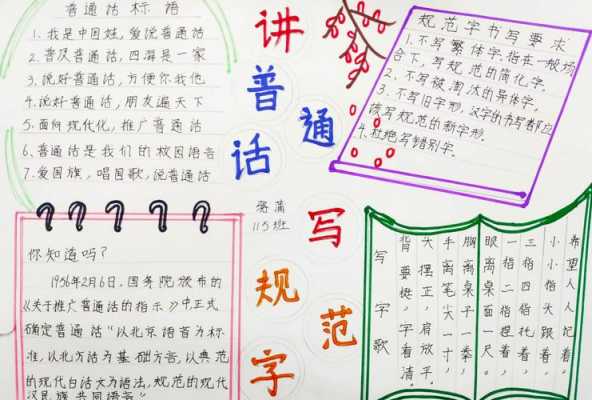 普通话标语
1、我是中国娃,爱说普通话
2、普及普通话,四海是一家
3、说好普通话,方便你我他
4、说好普通话,朋友遍天下
5、面向现代化,推广普通话
6、普通话是我们的校园语言
7、爱国旗,唱国歌,说普通话
讲普通话
写规范字
115班
规范字书写要求
1、不写繁体字.指在一般场
合下,写规范的简化字.
2、不写被淘汰的异体字.
3、不写旧字形,汉字的书写都应
该写规范的新字形.
4、杜绝写错别字.
你知道吗?
1956年2月6日,国务院颁布的
《关于推广普通话的指示》中正式
确定普通话“以北京语音为标
准,以北方话为基础方言,以典范
的现代白话文为语法,规范的现代
汉民族共同语言”
写字歌
希望人人记着
小小指头跟着,
三指四指托着
一指二指捏着
眼离桌面一尺。
胸离桌子一拳,
手离笔尖一寸,
头摆正,肩放平,
背要挺,字看清。